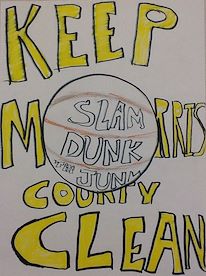 KEEP
MORRIS
SLAM
DUNK
JUNK
COUNTY
CLEAN